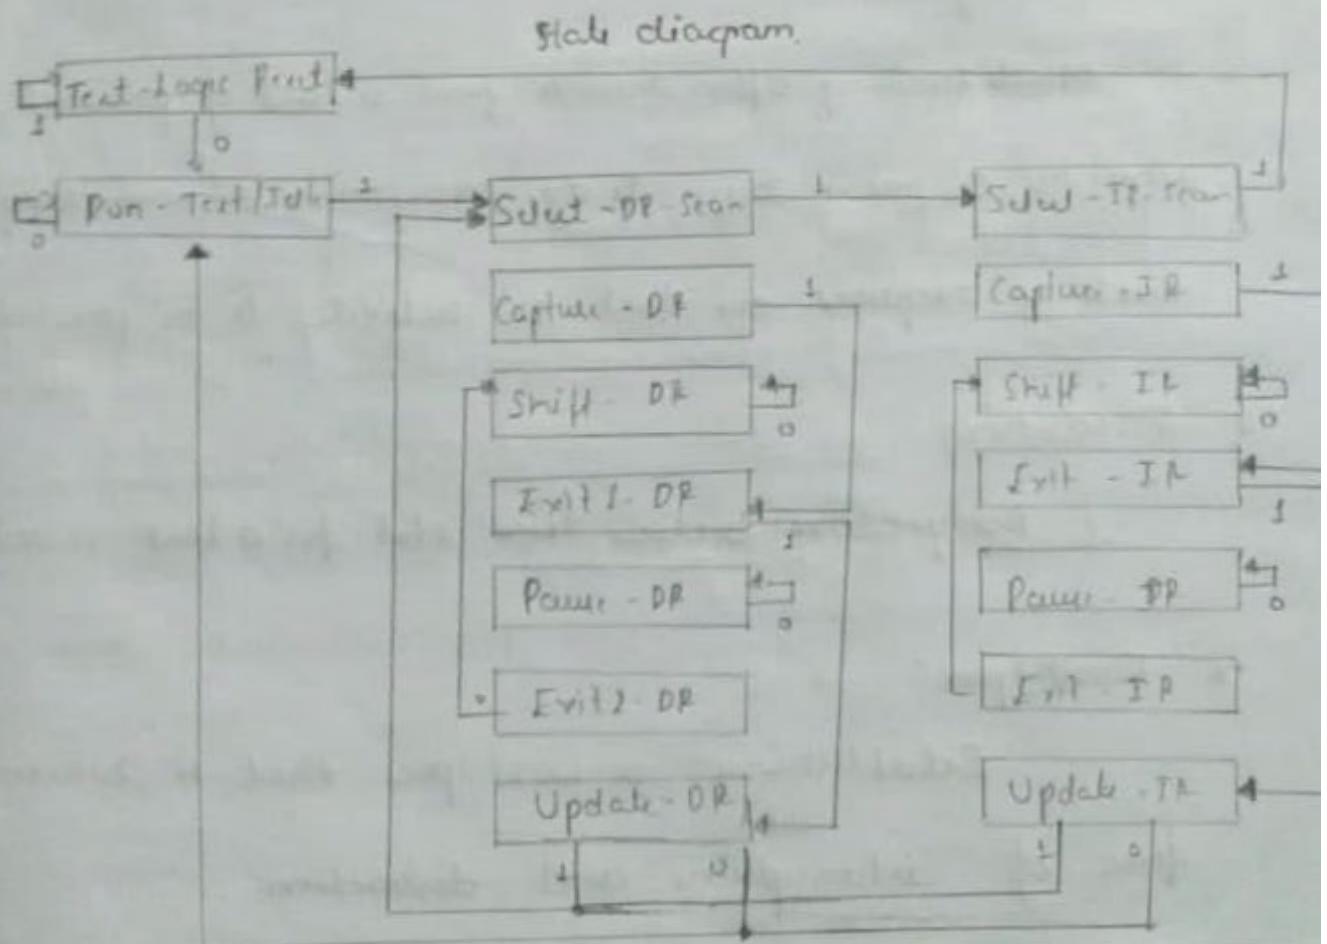 State diagram.
Test-Logic Reset
1
0
Run - Test/Idle
0
1
Select - DR - Scan
1
Select - IR - Scan
1
Capture - DR
1
Capture - IR
1
Shift - DR
0
Shift - IR
0
Exit 1 - DR
1
Exit - IR
1
Pause - DR
0
Pause - DR
0
Exit 2 - DR
0
Exit - IR
Update - DR
Update - IR
1
0
1
0